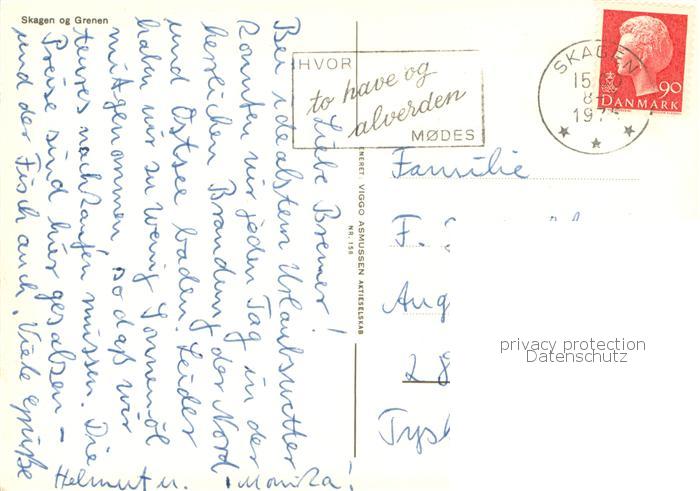 Skagen og Grenen
Liebe Bremer!
Bei idealstem Urlaubswetter
konnten wir jeden Tag in der
herrlichen Brandung der Nord
und Ostsee baden. Leider
haben wir zu wenig Sonnenöl
mitgenommen so daß wir
teures nachkaufen müssen. Die
Preise sind hier gesalzen –
und der Fisch auch. Viele Grüße
Helmut u. Monika!
ENERET VIGGO ASMUSSEN AKTIESELSKAB
NR. 158
HVOR
to have og
alverden
MØDES
SKAGEN
15
8
197
90
DANMARK
Familie
F.
Aug
28
Tys
privacy protection
Datenschutz